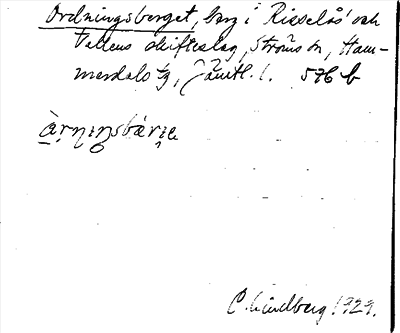 Ordningsberget, berg i Risselås' och
Vallens skifteslag, Ströms sn, Ham-
merdals tg, Jämtl. l. 576 b
C. Lindberg 1929.